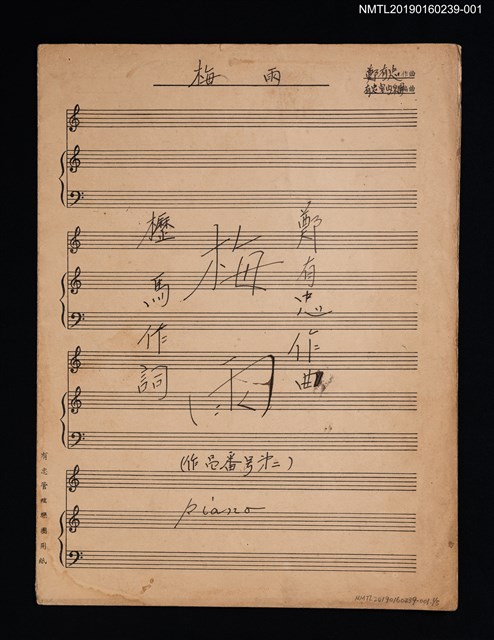 NMTL20190160239-001
梅雨
鄭有忠作曲
鄭有忠作曲
梅雨
櫪馬作詞
(作品番号第二)
piano
有忠管絃樂團用紙
NMTL20190160239-001